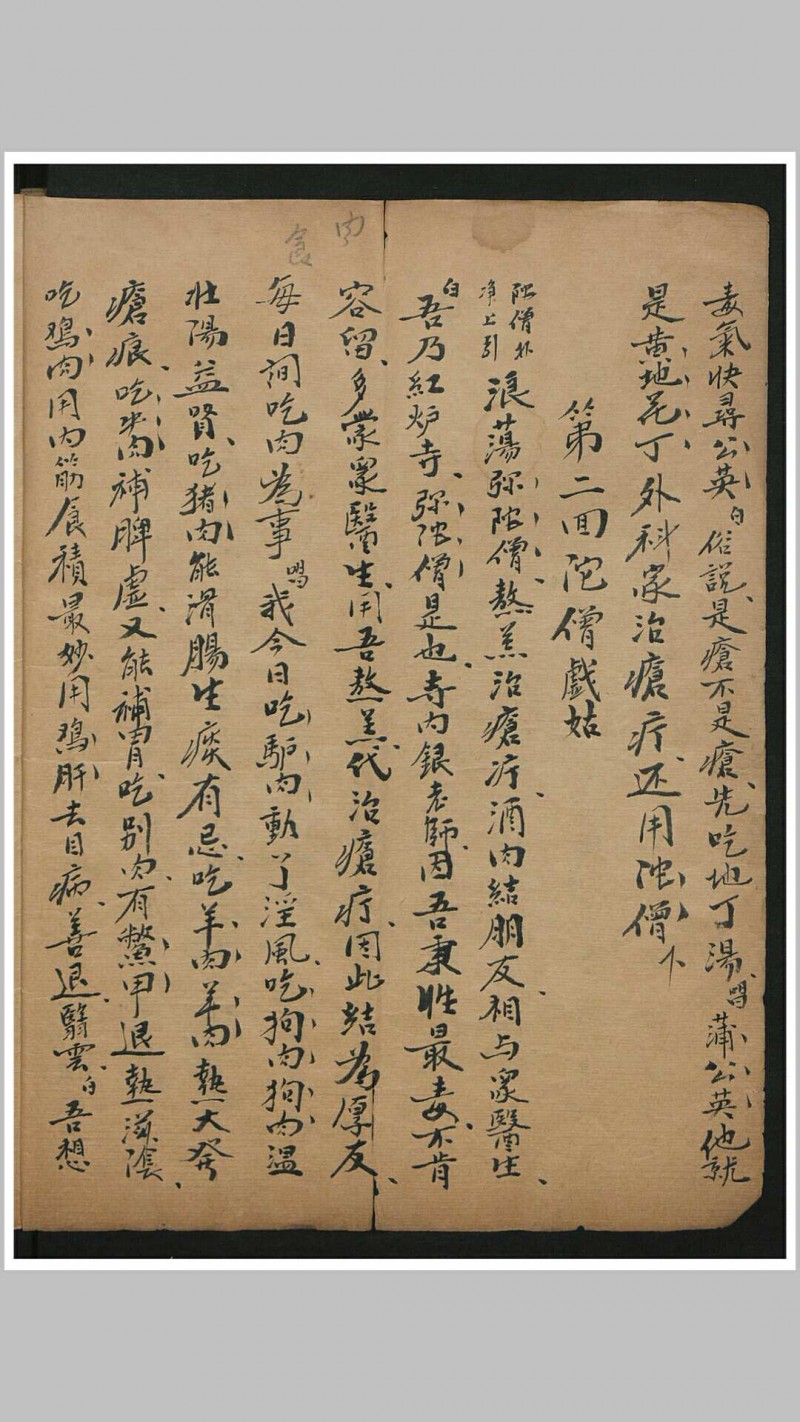 毒氣快尋公英白俗說是瘡不是瘡先吃地丁湯唱蒲公英他就
是黃地花丁外科家治瘡疔还用陀僧下
第二回陀僧戲姑
陀僧扑净上引浪蕩弥陀僧熬羔治瘡疔酒肉結朋友相与眾醫生
白吾乃紅炉寺弥陀僧是也寺內銀老師因吾秉性最毒不肯
容留多蒙眾醫生用吾熬羔代治瘡疔因此結為厚友
每日間吃肉為事唱我今日吃馿肉動了淫風吃狗肉狗肉溫
壯陽益腎吃猪肉能滑腸生痰有忌吃羊肉羊肉熱大發
瘡痕吃肉補脾虛又能補胃吃別肉有鱉甲退熱滋陰
吃鷄肉用內筋食積最妙用鷄肝去目病善退翳雲白吾想
肉
食